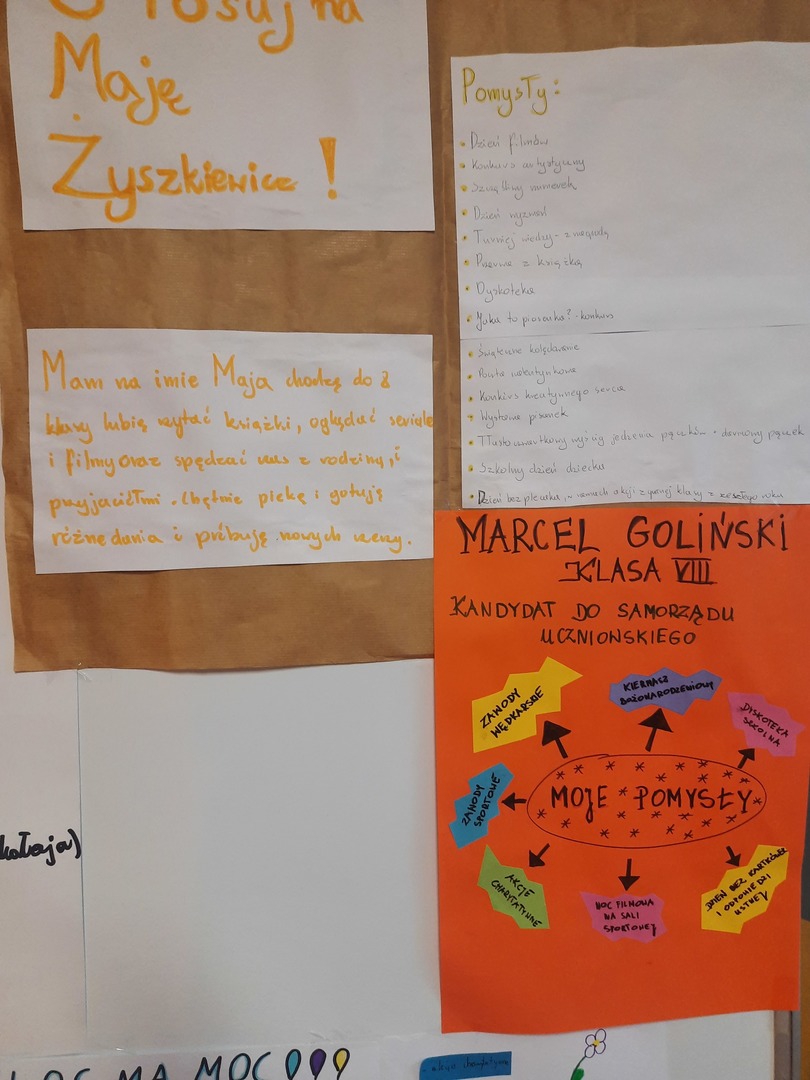 Głosuj na
Maję
Żyszkiewicz!
Mam na imie Maja chodzę do 8
klasy lubię czytać książki, oglądać seriale
i filmy oraz spędzać czas z rodziną i
przyjaciółmi. Chętnie piekę i gotuję
różne dania i próbuję nowych rzeczy.
Pomysły:
• Dzień filmów
• Konkurs artystyczny
• Szczęśliwy numerek
• Dzień wyzwań
• Turniej wiedzy - z nagrodą
• Przerwa z książką
• Dyskoteka
• Jaka to piosenka? - konkurs
• Świąteczne kolędowanie
• Poczta walentynkowa
• Konkurs kreatywnego serca
• Wystawa pisanek
• Tłustoczwartkowy wyścig jedzenia pączków - darmowy pączek
• Szkolny dzień dziecka
• Dzień bez plecaka, w ramach akcji z zeszłego roku
MARCEL GOLIŃSKI
KLASA VIII
KANDYDAT DO SAMORZĄDU
UCZNIONSKIEGO
ZAWODY
WĘDKARSKIE
KIERMASZ
BOŻONARODZENIOWY
DISKOTEKA
SZKOLNA
ZAWODY
SPORTOWE
MOJE POMYSŁY
AKCJE
CHARYTATYWNE
NOC FILMOWA
NA SALI
SPORTOWEJ
DZIEŃ BEZ KARTKÓWEK
I ODPOWIEDZI
USTNEJ
MA MOC!!!